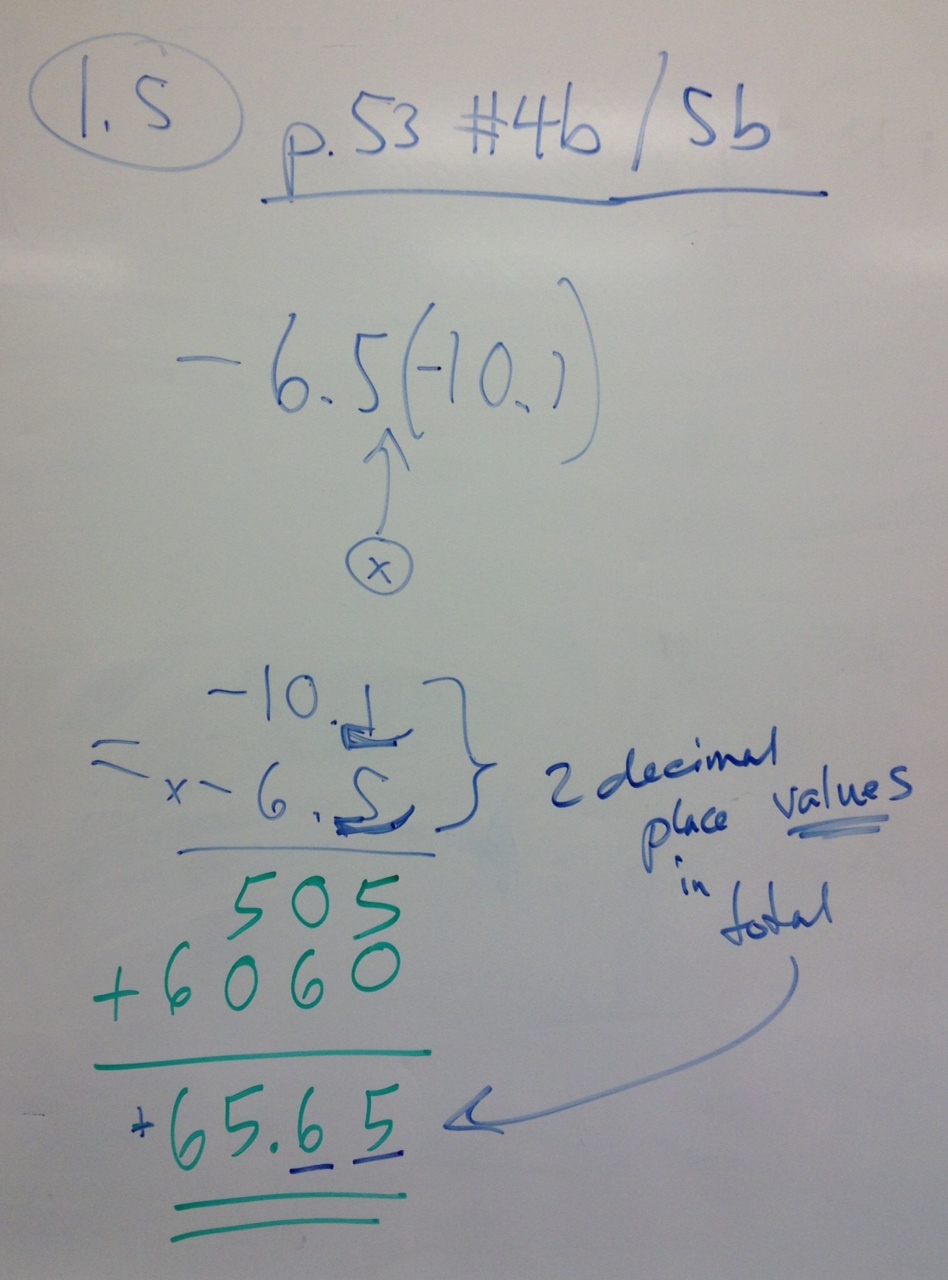 1.5
p.53 #4b / 5b
-6.5(-10.1)
x
-10.1
= x-6.5
2 decimal
place values
in
total
505
+6060
+65.65